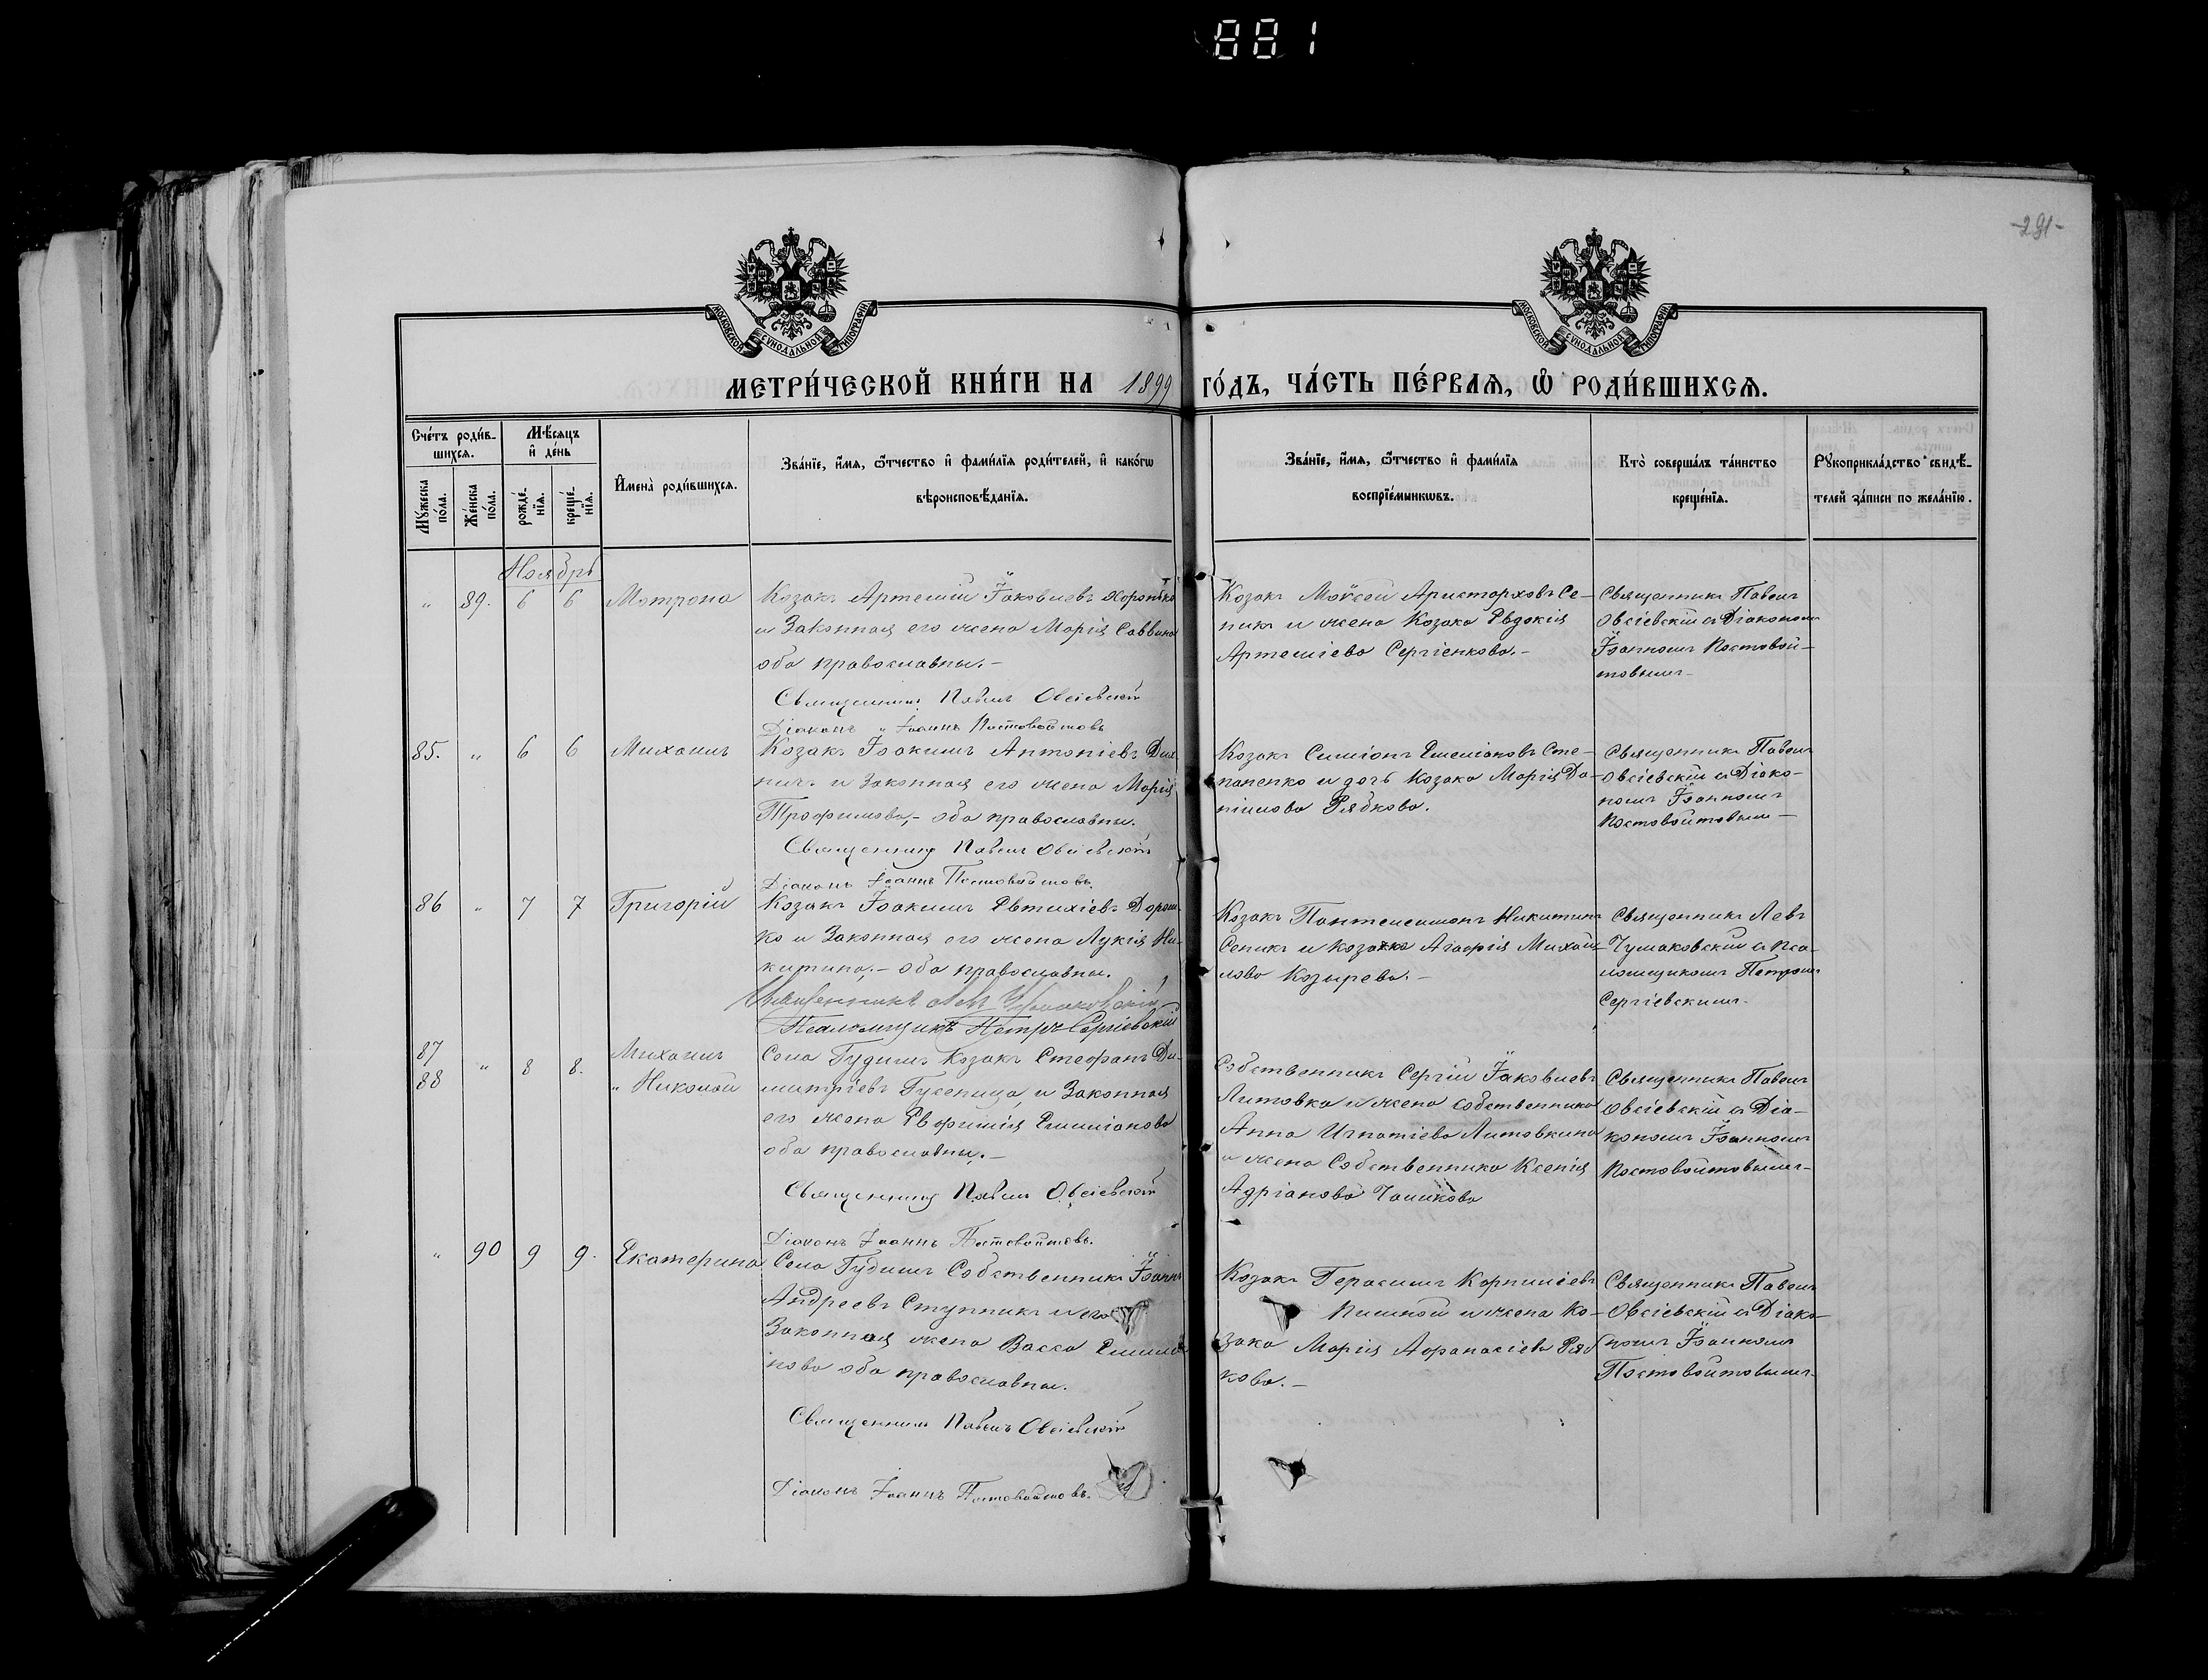 881
-291-
МОСКОВСКОЙ СѴНОДАЛЬНОЙ ТИПОГРАФІИ
МОСКОВСКОЙ СѴНОДАЛЬНОЙ ТИПОГРАФІИ
МЕТРИ́ЧЕСКОЙ КНИ́ГИ НА 1899 ГО́ДЪ, ЧА́СТЬ ПЕ́РВАѦ, Ѽ РОДИ́ВШИХСѦ.
Сче́тъ роди́в-
шихсѧ.
Мꙋ́жеска по́ла.
Же́нска по́ла.
Мѣ́сѧцъ
и҆ де́нь
рожде́-
нїѧ.
креще́-
нїѧ.
И҆мена̀ роди́вшихсѧ.
Зва́нїе, и҆́мѧ, ѻ҆́тчество и҆ фами́лїѧ роди́телей, и҆ како́гѡ
вѣроисповѣ́данїѧ.
Зва́нїе, и҆́мѧ, ѻ҆́тчество и҆ фами́лїѧ
воспрїе́мникѡвъ.
Кто̀ соверша́лъ та́инство
креще́нїѧ.
Рꙋкоприкла́дство свидѣ́-
телей за́писи по жела́нїю.
Ноябрь
" 89. 6 6 Мотрона
Козакъ Артемій Іаковлевъ Хоронько
и Законная его жена Марія Саввина
оба православны.-
Священникъ Павелъ Овсіевскій
Діаконъ Іоаннъ Постовойтовъ
Козакъ Моѵсей Аристарховъ Се-
никъ и жена Козака Евдокія
Артеміева Сергіенкова.-
Священникъ Павелъ
Овсіевскій съ Діакономъ
Іоанномъ Постовой-
товымъ-
85. " 6 6 Михаилъ
Козакъ Іоакимъ Антоніевъ
и Законная его жена Марія
Трофимова,- оба православны.
Священникъ Павелъ Овсіевскій
Діаконъ Іоаннъ Постовойтовъ.
Козакъ Симіонъ Емеліановъ Сте-
паненко и дочь Козака Марія Да-
ніилова Рябкова.
Священникъ Павелъ
Овсіевскій съ Діако-
номъ Іоанномъ
Постовойтовымъ-
86 " 7 7 Григорій
Козакъ Іоакимъ Евтихіевъ Дорош-
ко и Законная его жена Лукія Ни-
китина,- оба православны.
Священникъ Левъ Чумаковскій
Псаломщикъ Петръ Сергіевскій
Козакъ Пантелеимонъ Никитинъ
Сеникъ и козачка Агафія Михаи-
лова Козырева.-
Священникъ Левъ
Чумаковскій съ пса-
ломщикомъ Петромъ
Сергіевскимъ.
87
88 " 8 8. Михаилъ
" Николай
Села Гудимъ Козакъ Стефанъ Ди-
митріевъ Гусеница, и Законная
его жена Евфимія Емиліанова
оба православны.-
Священникъ Павелъ Овсіевскій
Діаконъ Іоаннъ Постовойтовъ.
Собственникъ Сергій Іаковлевъ
Литовка и жена собственника
Анна Игнатіева Литовкина
и жена Собственника Ксенія
Адріанова
Священникъ Павелъ
Овсіевскій съ Діа-
кономъ Іоанномъ
Постовойтовымъ-
" 90 9 9. Екатерина
Села Гудимъ Собственникъ Іоаннъ
Андреевъ Ступникъ и его
Законная жена Васса Емиліа-
нова оба православны.
Священникъ Павелъ Овсіевскій
Діаконъ Іоаннъ Постовойтовъ.
Козакъ Герасимъ Корниліевъ
и жена Ко-
зака Марія Афанасіева Ряб
кова.-
Священникъ Павелъ
Овсіевскій съ Діако-
номъ Іоанномъ
Постовойтовымъ-